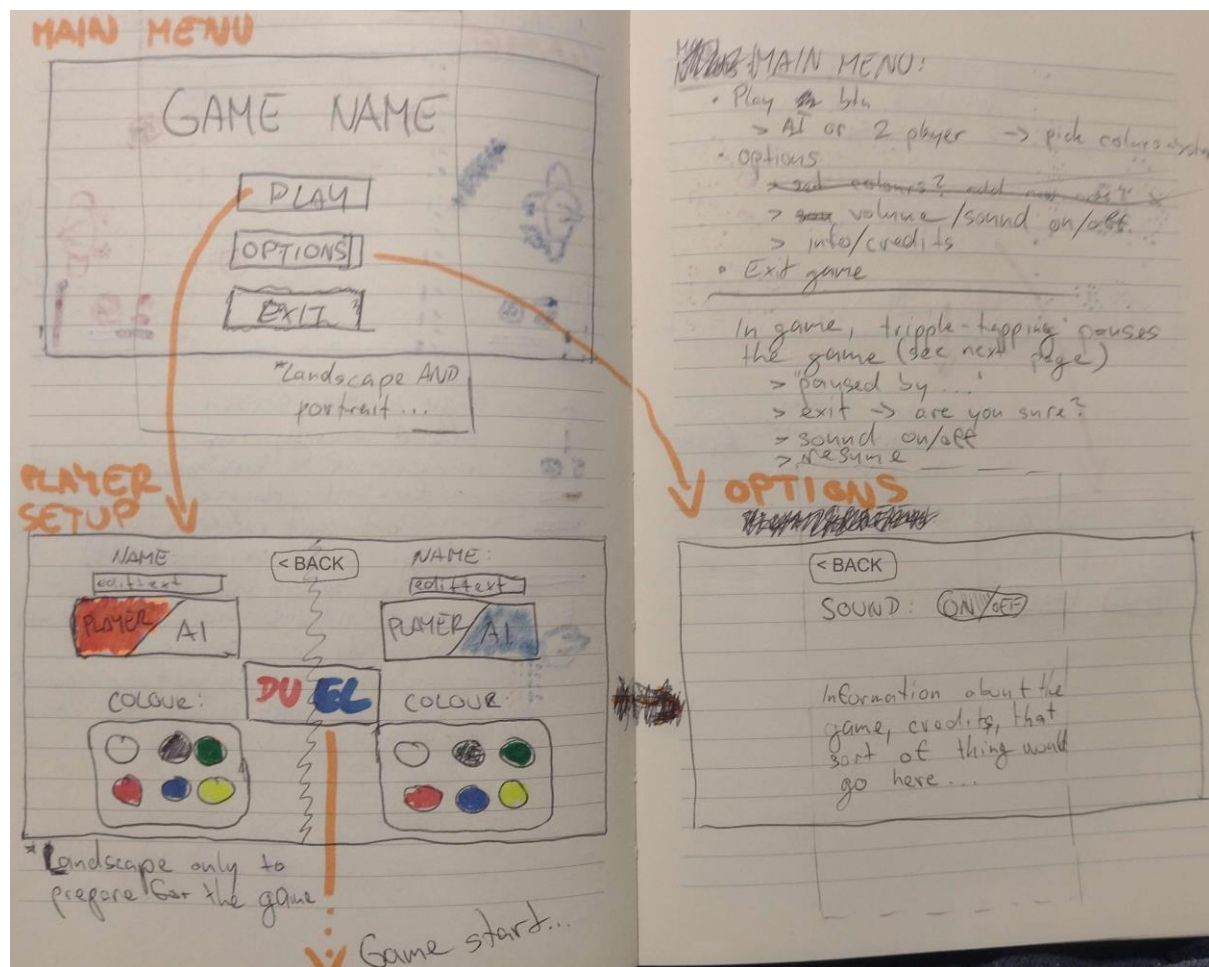 MAIN MENU
GAME NAME
PLAY
OPTIONS
EXIT
*Landscape AND
portrait...
PLAYER
SETUP
NAME
edittext
PLAYER
AI
COLOUR:
< BACK
DUEL
NAME:
edittext
PLAYER
AI
COLOUR
*Landscape only to
prepare for the game
Game start...
MAIN MENU:
• Play btn
> AI or 2 player -> pick colours
• options
> volume/sound on/off
> info/credits
• Exit game
In game, tripple-tapping pauses
the game (see next page)
> "paused by ..."
> exit -> are you sure?
> sound on/off
> resume
OPTIONS
< BACK
SOUND: ON/OFF
Information about the
game, credits, that
sort of thing would
go here...